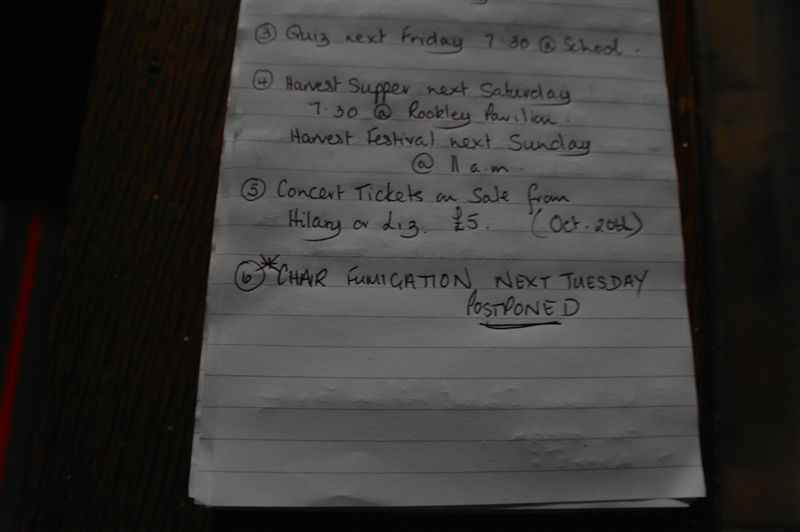 ③ Quiz next Friday 7.30 @ School.
④ Harvest Supper next Saturday
7.30 @ Rookley Pavilion.
Harvest Festival next Sunday
@ 11 a.m.
⑤ Concert Tickets on Sale from
Hilary or Liz. £5. (Oct. 20th)
⑥ * CHAIR FUMIGATION NEXT TUESDAY
POSTPONED